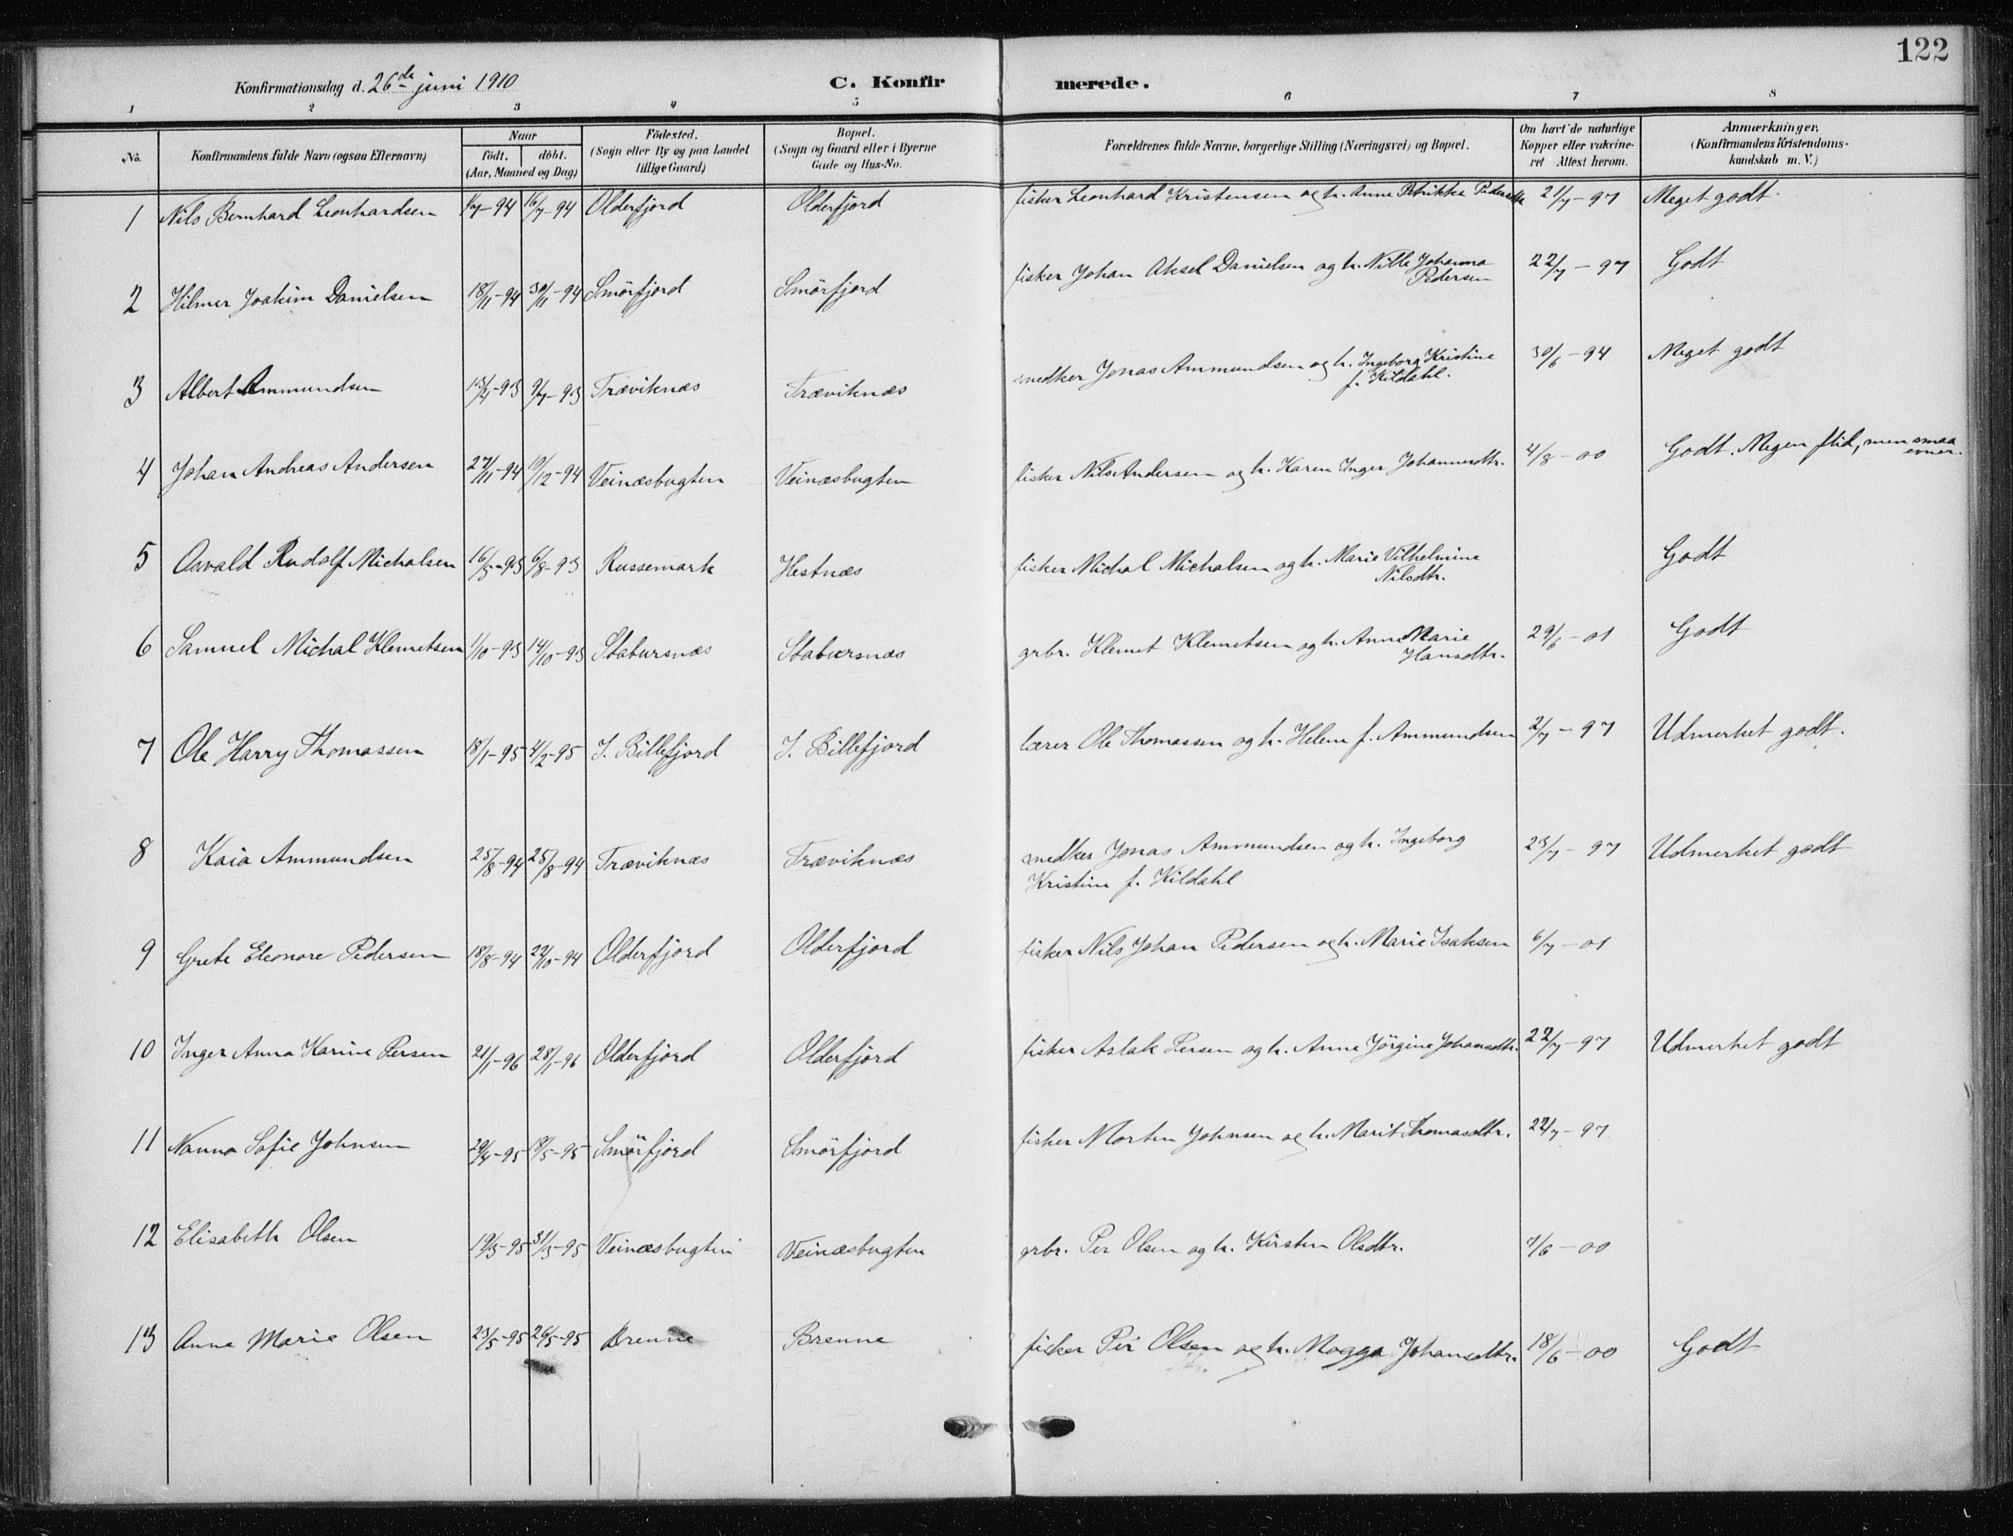 122
Konfirmationsdag d. 26de juni 1910 C. Konfirmerede.
1 2 3 4 5 6 7 8
No. Konfirmandens fulde Navn (ogsaa Efternavn) Naar født. døbt. (Aar, Maaned og Dag) Fødested. (Sogn eller By og paa Landet tillige Gaard) Bopæl. (Sogn og Gaard eller i Byerne Gade og Hus-No. Forældrenes fulde Navne, borgerlige Stilling (Næringsvei) og Bopæl. Om havt de naturlige Kopper eller vakcineret Attest herom. Anmærkninger. (Konfirmandens Kristendomskundskab m. V.)
1 Nils Bernhard Leonhardsen 16/7-94 Olderfjord Olderfjord fisker Leonhard Kristensen og h. Anne Petrikke 21/7-97 Meget godt.
2 Hilmer Joakim Danielsen 18/11-94 30/11-94 Smörfjord Smörfjord fisker Johan Aksel Danielsen og h. Nille Johanna Pedersen 22/7-97 Godt
3 Albert Ammundsen 13/4-93 9/7-93 Træviknæs Træviknæs snedker Jonas Ammundsen og h. Ingeborg Kristine f. Kildahl. 30/6-94 Meget godt
4 Johan Andreas Andersen 27/11-94 19/12-94 Veinæsbugten Veinæsbugten fisker Nils Andersen og h. Karen Inger Johannesdtr. 4/8-00 Godt. Megen flid, men smaa evner.
5 Osvald Rudolf Michalsen 16/5-93 6/8-93 Russemark Hestnæs fisker Michal Michalsen og h. Marie Vilhelmine Nilsdtr. Godt
6 Samuel Michal Klemetsen 1/10-93 14/10-93 Stabursnæs Stabursnæs grbr. Klemet Klemetsen og h. Anne Marie Hansdtr. 29/6-01 Godt
7 Ole Harry Thomassen 18/1-95 4/2-95 I. Billefjord I. Billefjord lærer Ole Thomassen og h. Helene f. Ammundsen 2/7-97 Udmerket godt.
8 Kaia Ammundsen 25/8-94 25/8-94 Træviknæs Træviknæs snedker Jonas Ammundsen og h. Ingeborg Kristine f. Kildahl 23/7-97 Udmerket godt
9 Grete Eleonore Pedersen 18/8-94 22/10-94 Olderfjord Olderfjord fisker Nils Johan Pedersen og h. Marie Isaksen 6/7-01
10 Inger Anna Karine Persen 21/1-96 28/1-96 Olderfjord Olderfjord fisker Aslak Persen og h. Anne Jörgine Johansdtr. 22/7-97 Udmerket godt
11 Nanna Sofie Johnsen 29/4-95 19/5-95 Smörfjord Smörfjord fisker Morten Johnsen og h. Marit Thomasdtr. 22/7-97
12 Elisabeth Olsen 19/3-95 31/3-95 Veinæsbugten Veinæsbugten grbr. Per Olsen og h. Kirsten Olsdtr. 7/6-00
13 Anne Marie Olsen 23/5-95 26/5-95 Brenne Brenne fisker Per Olsen og h. Magga Johansdtr. 18/6-00 Godt